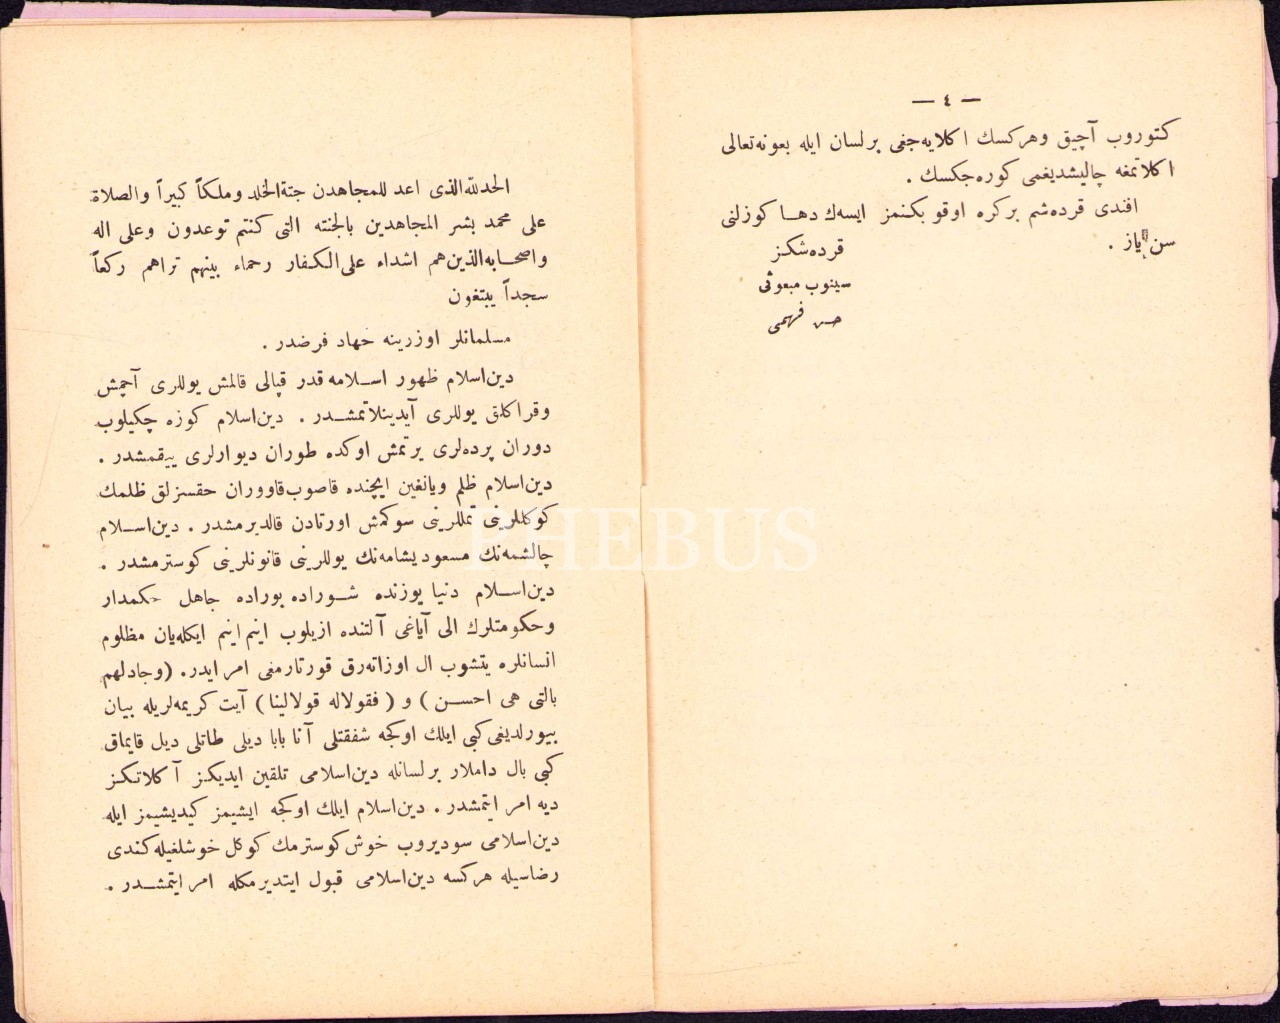 — ٤ —
كتوروب آچيق وهركسك اكلايه‌جغى برلسان ايله بعونه‌تعالى
اكلاتمغه چاليشديغمى كوره‌جكسك .
افندى قرده‌شم بركره اوقو بكنمز ايسه‌ك دها كوزلنى
سن ياز .
قرده‌شكز
سينوب مبعوثى
حسن فهمى
الحمدلله‌الذى اعد للمجاهدن جنة‌الخلد وملكاً كبيراً والصلاة
على محمد بشر المجاهدين بالجنته التى كنتم توعدون وعلى اله
واصحابه‌الذين‌هم اشداء على‌الكفار رحماء بينهم تراهم ركعاً
سجداً يبتغون
مسلمانلر اوزرينه جهاد فرضدر .
دين‌اسلام ظهور اسلامه قدر قپالى قالمش يوللرى آچمش
وقراكلق يوللرى آيدينلاتمشدر . دين‌اسلام كوزه چكيلوب
دوران پرده‌لرى يرتمش اوكده طوران ديوارلرى ييقمشدر .
دين‌اسلام ظلم ويانغين ايچنده قاصوب‌قاووران حقسزلق ظلمك
كوكللرينى تمللرينى سوكمش اورتادن قالديرمشدر . دين‌اسلام
چالشمه‌نك مسعود يشامه‌نك يوللرينى قانونلرينى كوسترمشدر .
دين‌اسلام دنيا يوزنده شوراده بوراده جاهل حكمدار
وحكومتلرك الى آياغى آلتنده ازيلوب اينم اينم ايكله‌يان مظلوم
انسانلره يتشوب ال اوزاته‌رق قورتارمغى امر ايدر. (وجادلهم
بالتى هى احسن) و (فقولاله قولالينا) آيت كريمه‌لريله بيان
بيورلديغى كبى ايلك اوكجه شفقتلى آنا بابا ديلى طاتلى ديل قايماق
كبى بال داملار برلسانله دين‌اسلامى تلقين ايديكز آكلاتكز
ديه امر ايتمشدر . دين‌اسلام ايلك اوكجه ايشيمز كيديشيمز ايله
دين‌اسلامى سوديروب خوش كوسترمك كوكل خوشلغيله كندى
رضاسيله هركسه دين‌اسلامى قبول ايتديرمكله امر ايتمشدر .
PHEBUS